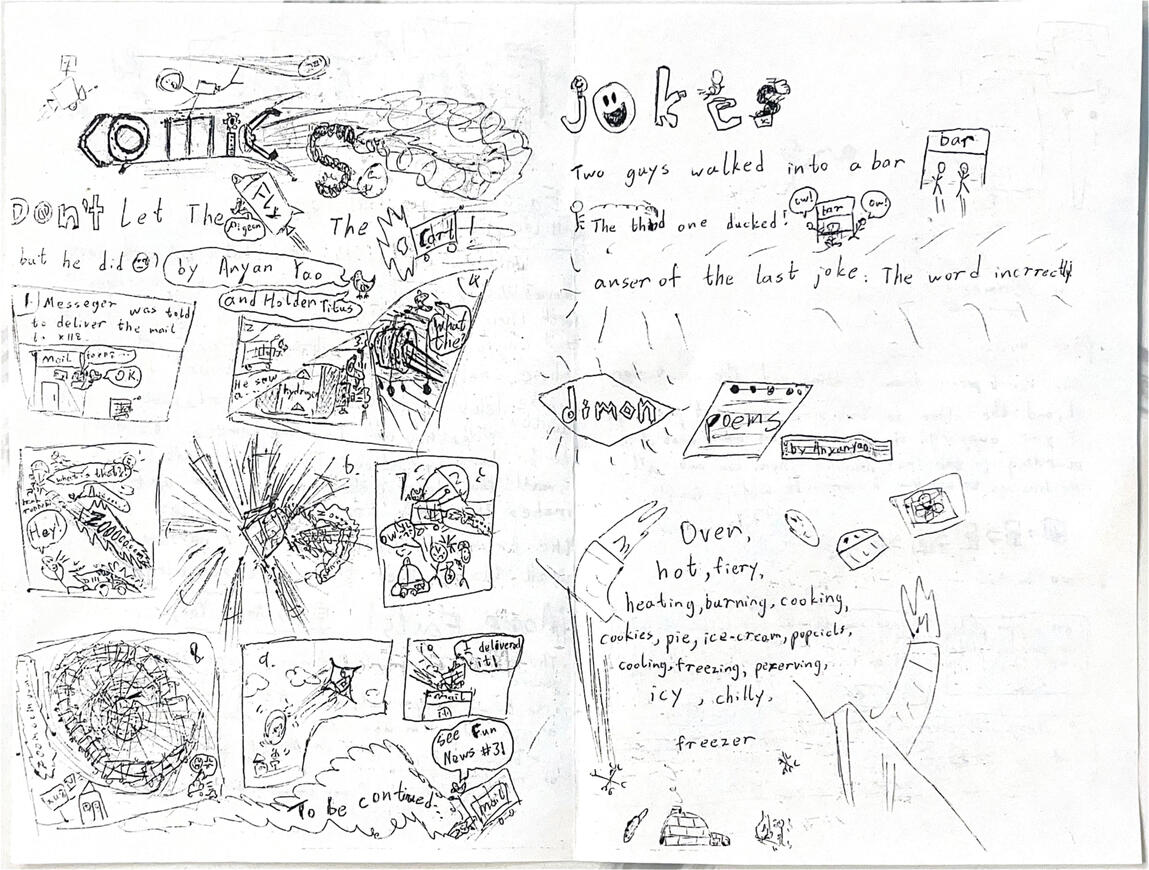 comics
Don't Let The pigeon Fly The cart!
but he did
by Anyan Yao
and Holden Titus
1. Messeger was told
to deliver the mail
to
Mail
OK
2
He saw
a
hydrogen
3.
What
the?
what's that?
Hey!
6.
7
ow
8
9.
10
I delivered
it!
mail
See Fun
News #3!
To be continued.
mail
Jokes
Two guys walked into a bar
bar
The third one ducked!
ow!
bar
ow!
anser of the last joke: The word incrrectly
dimon
poems
by Anyan Yao
Oven,
hot, fiery,
heating, burning, cooking,
cookies, pie, ice-cream, popcicls,
cooling, freezing, perzerving,
icy, chilly,
freezer